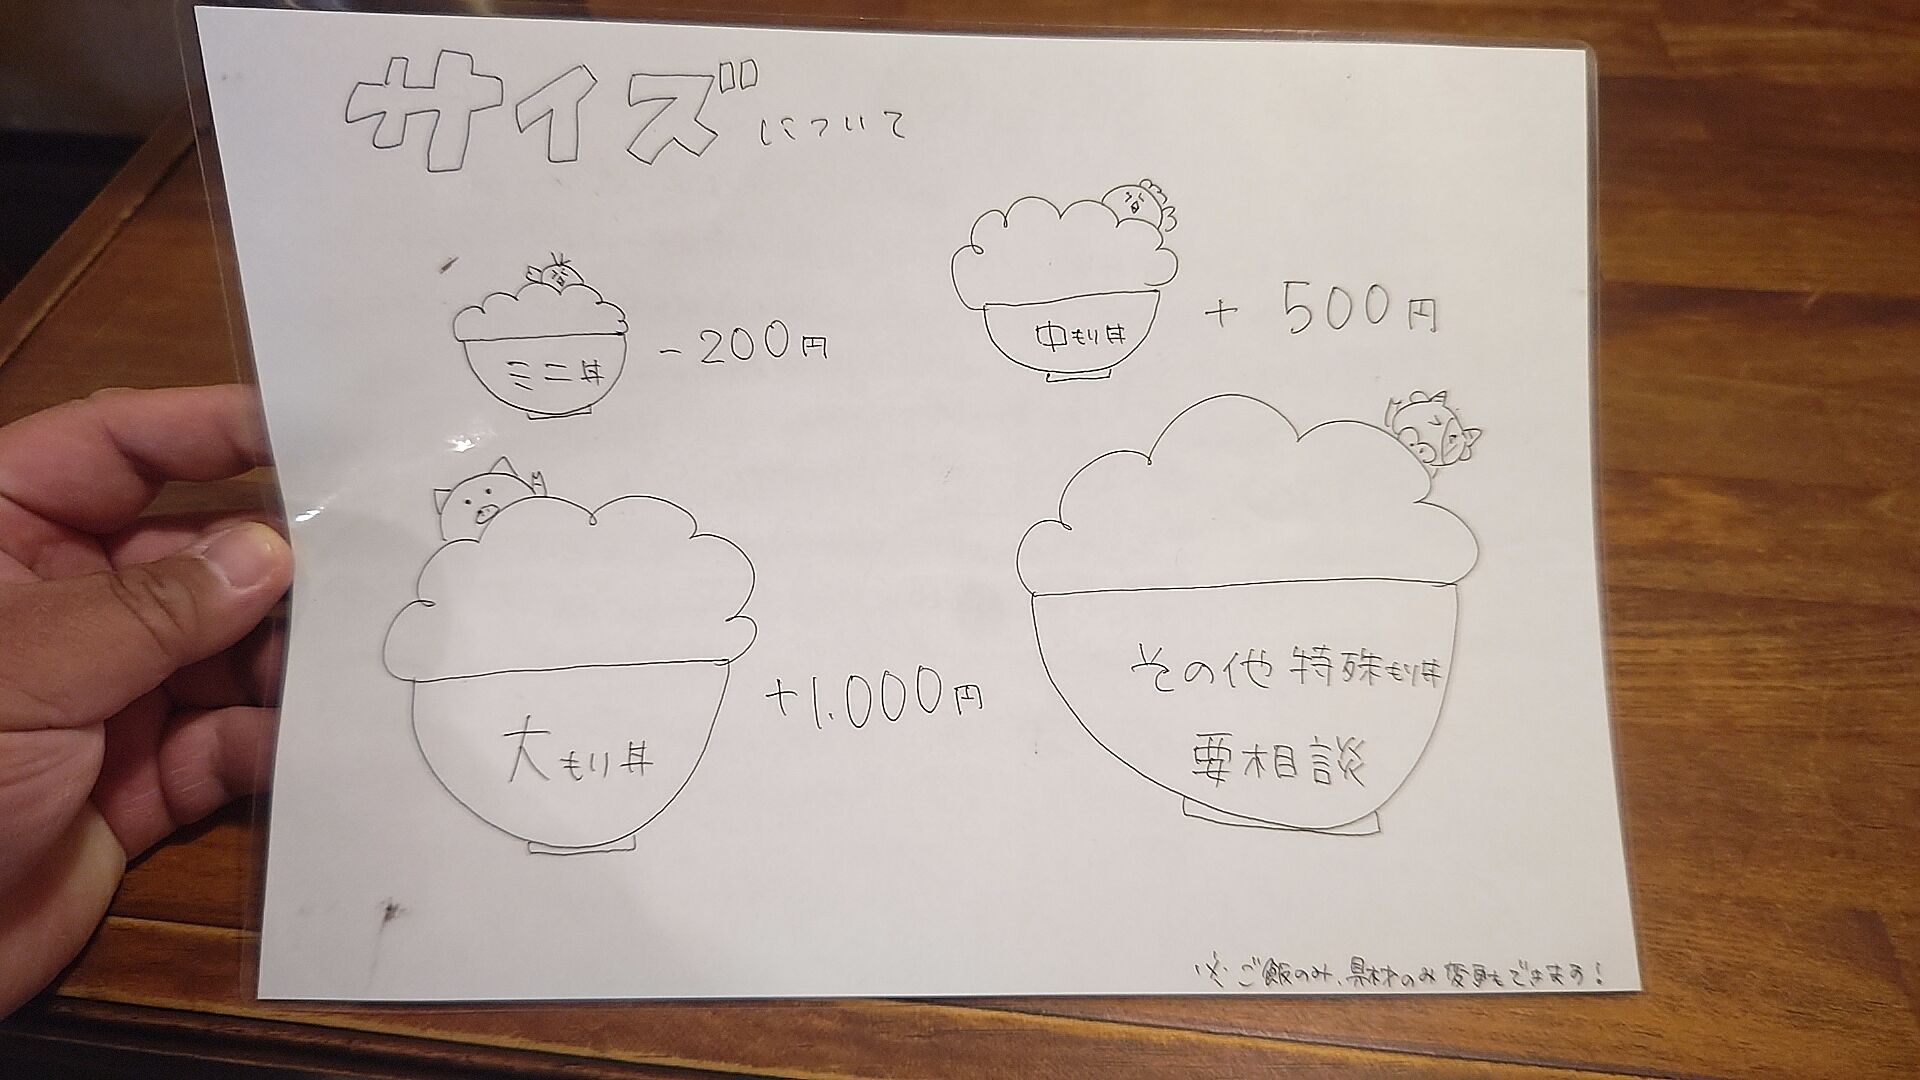 サイズについて
ミニ丼
-200円
中もり丼
+ 500円
大もり丼
+1.000円
その他 特殊もり丼
要相談
※ ご飯のみ、具材のみ 変更もできます!